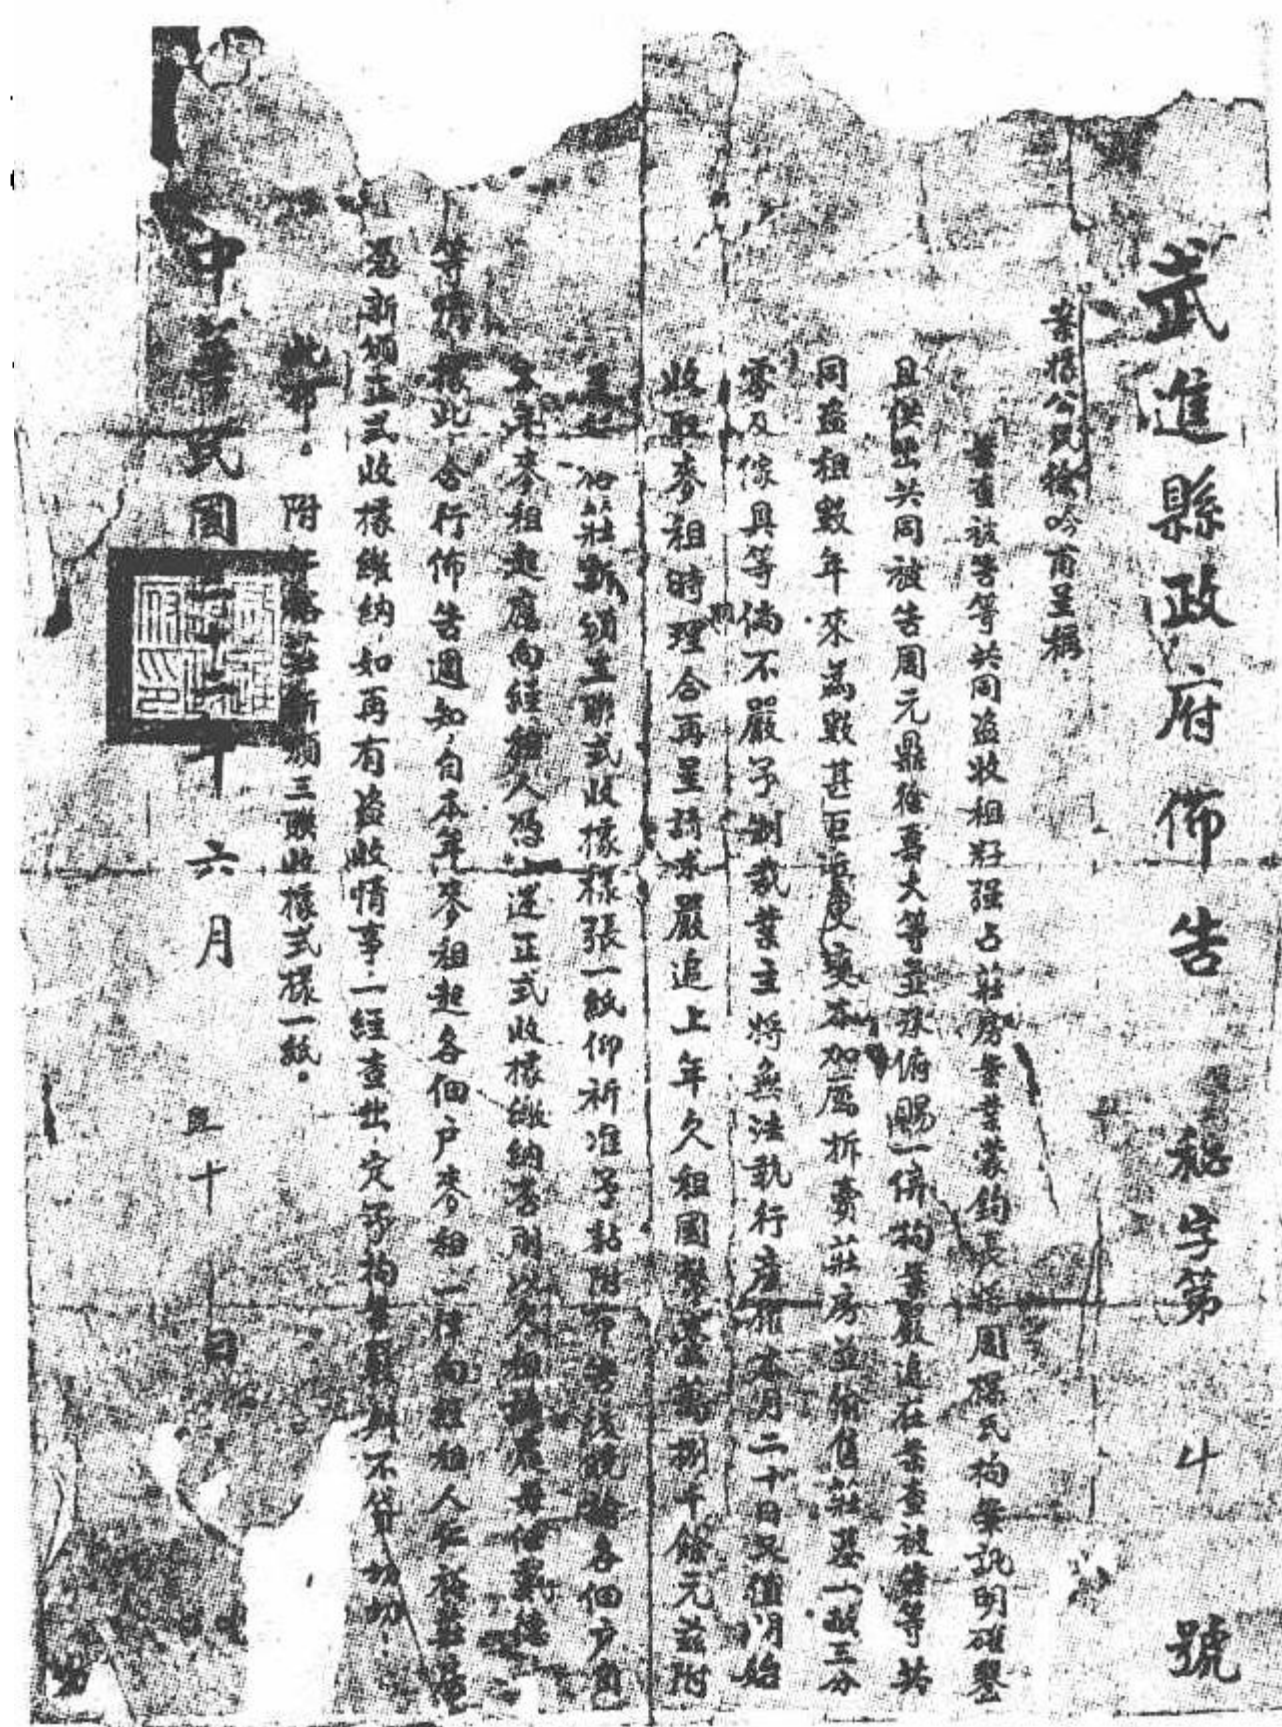 武進縣政府佈告 秘字第 號
案據公民徐吟甫呈稱
查被告等共同盜收租籽强占莊房等業蒙鈞長將周楊氏拘案訊明確鑿
且供出共同被告周元鼎徐壽大等並承俯賜一併拘案嚴追在案查被告等共
同盜租數年來為數甚巨 變本加厲拆賣莊房並偷售莊基一畝三分
零及傢具等倘不嚴予制裁業主將無法執行產權本月二十日又值開始
收取麥租時理合再呈請求嚴追上年欠租國幣 萬捌千餘元茲附
呈 裕莊新頒三聯式收據樣張一紙仰祈准予黏附 各佃戶自
本年麥租起應向經租人憑上述正式收據繳納 欠租
等情據此合行佈告週知自本年麥租起各佃戶麥租一律向經租人 裕莊
憑新頒正式收據繳納如再有盜收情事一經查出定予拘案 不貸切切
此佈。 附 裕莊新頒三聯收據式樣一紙。
中華民國 六月 十 日